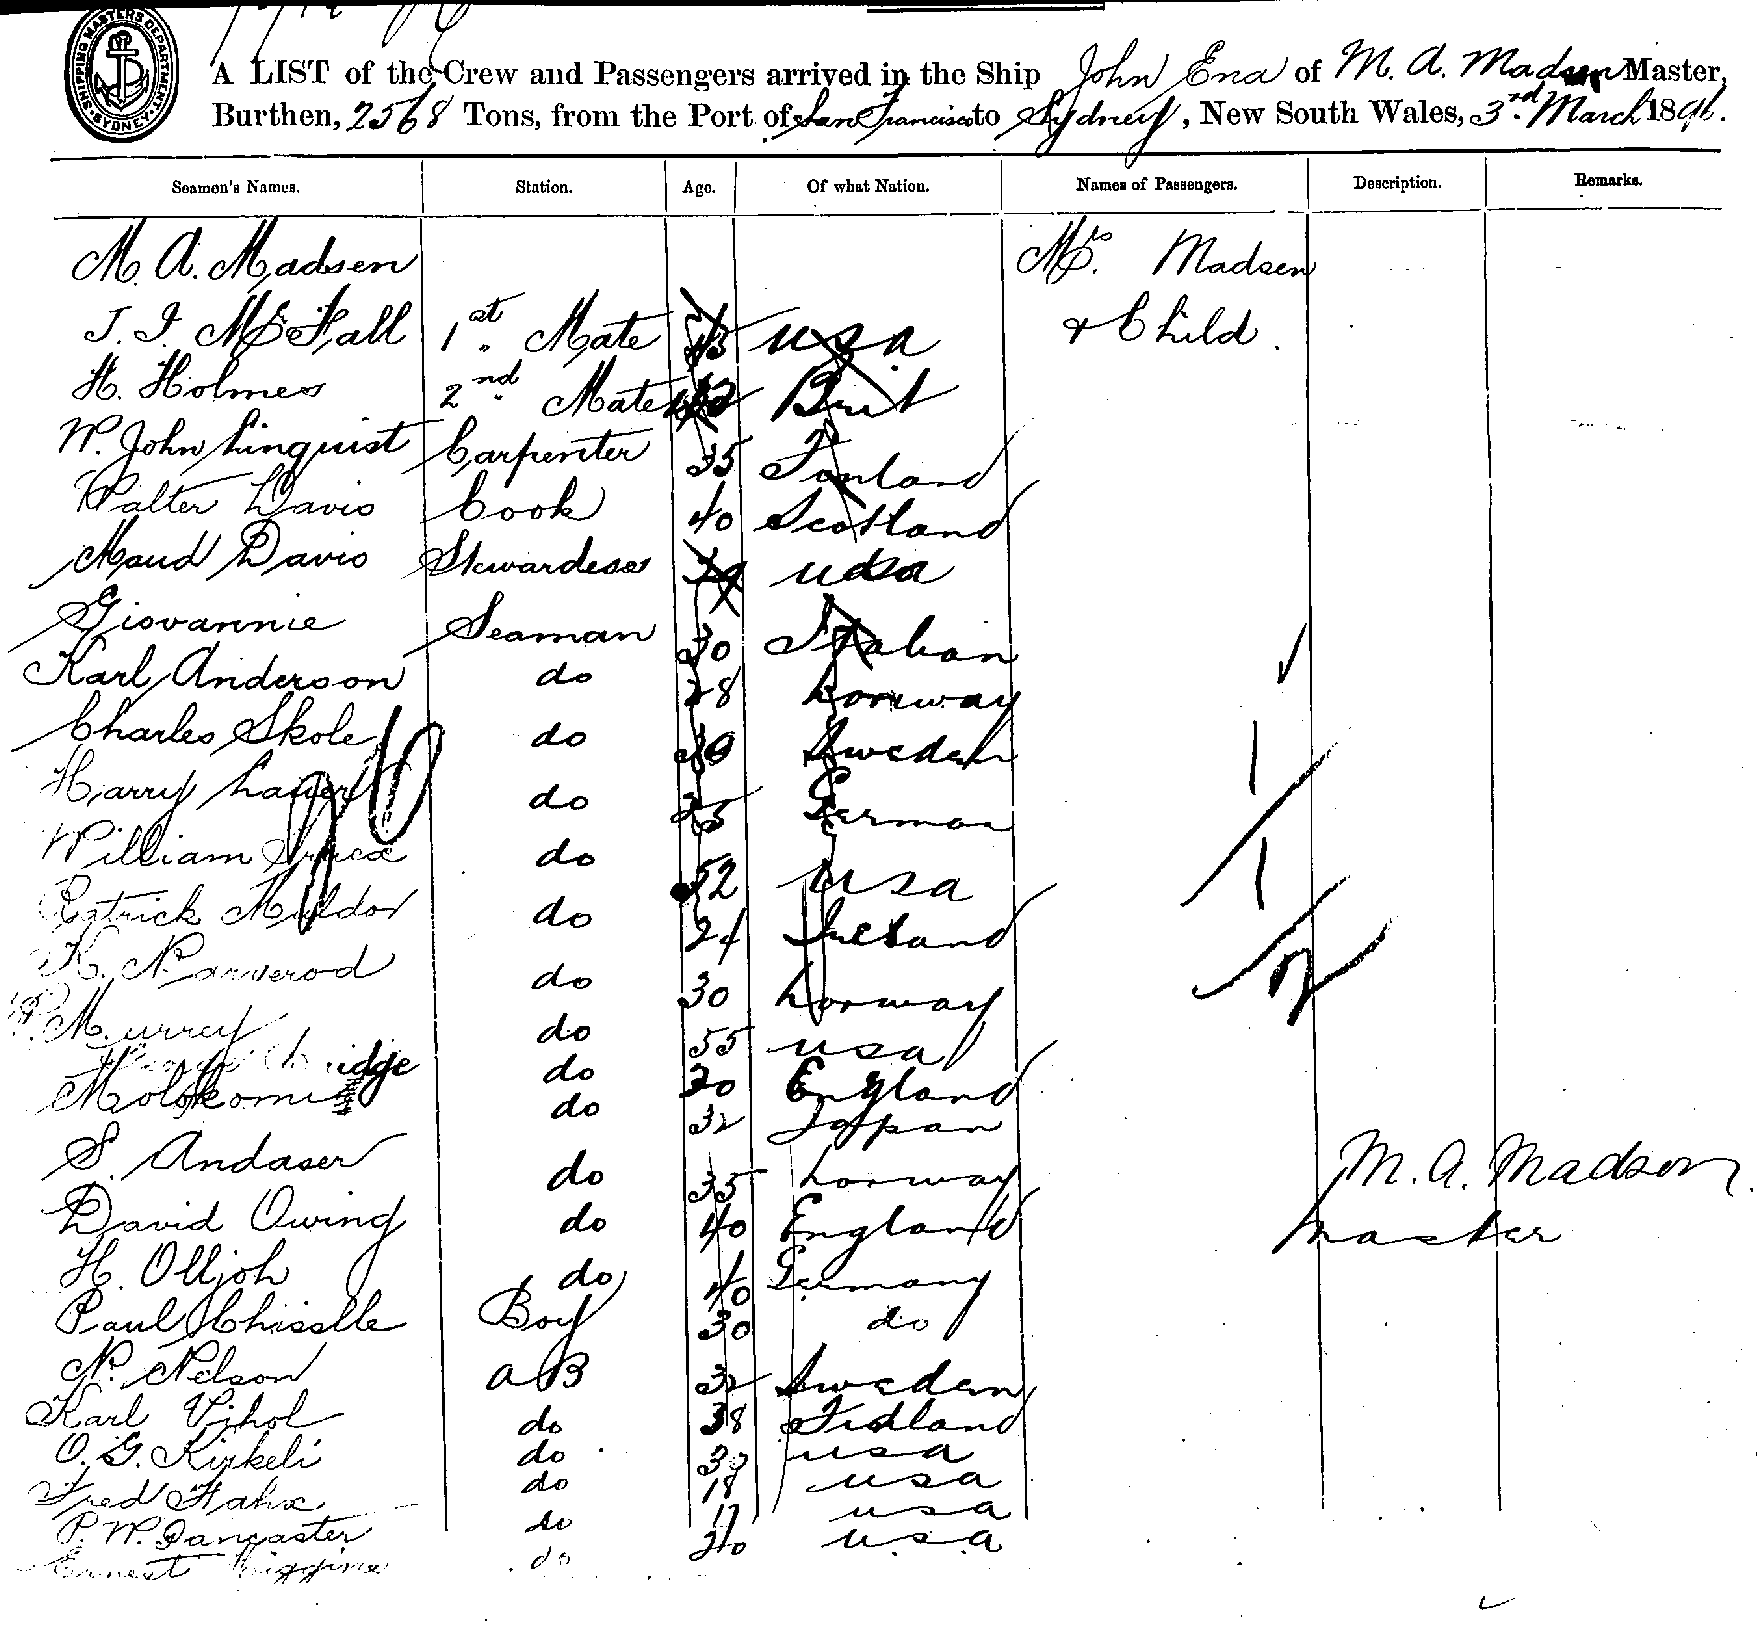 SHIPPING MASTERS DEPARTMENT SYDNEY
A LIST of the Crew and Passengers arrived in the Ship John Ena of M. A. Madsen Master,
Burthen, 2568 Tons, from the Port of San Francisco to Sydney, New South Wales, 3rd March 1896.
Seamen's Names. Station. Age. Of what Nation. Names of Passengers. Description. Remarks.
M. A. Madsen Mrs. Madsen
J. I. McFall 1st Mate 43 USA & Child.
H. Holmes 2nd Mate Brit
W. John Linquist Carpenter 35 Finland
Walter Davis Cook 40 Scotland
Maud Davis Stewardess 39 USA
Giovannie Seaman 30 Italian
Karl Anderson do 28 Norway
Charles Skole do 30 Sweden
Harry do 35 German
William do 52 USA
Patrick Muldor do 24 Ireland
K. Narverod do 30 Norway
P. Murrey do 55 USA
do 20 England
do 32 Japan
S. Andaser do 35 Norway
M. A. Madsen
David Owing do 40 England
Master
H. Olljoh do 40 Germany
Paul Chisslle Boy 30 do
N. Nelson AB 32 Sweden
Karl Vihol do 38
O. G. Kirkeli do 30 USA
Fred Hahx do 18 USA
P. W. Dancaster do 17 USA
Ernest Higgins do 20 USA
26